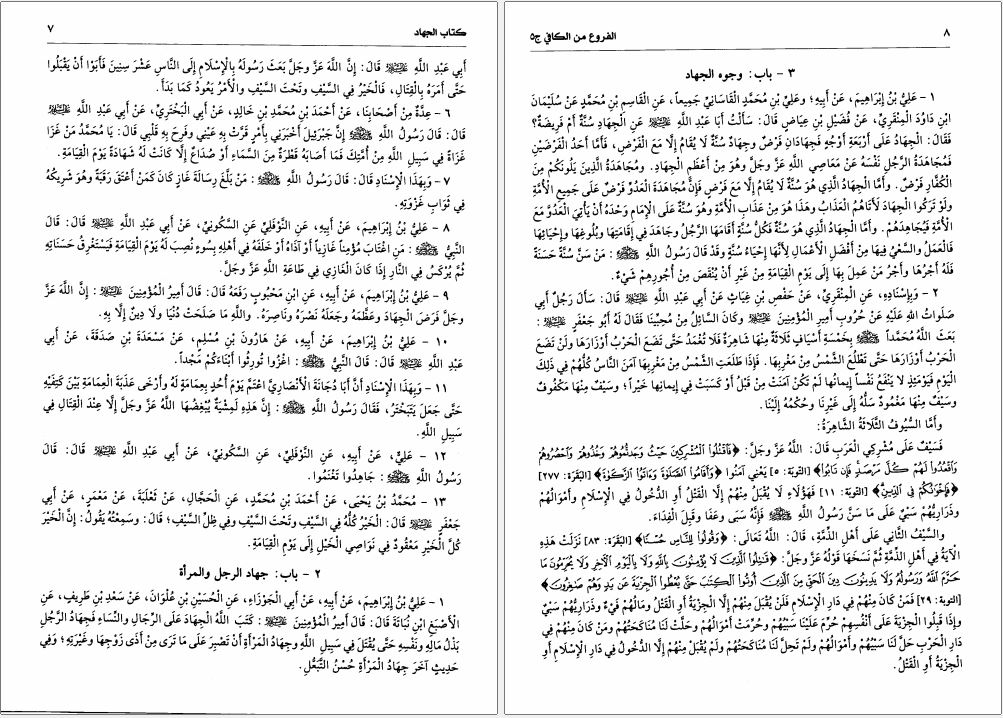 كتاب الجهاد
٧
أَبِي عَبْدِ اللَّهِ ﷺ قَالَ: إِنَّ اللَّهَ عَزَّ وَجَلَّ بَعَثَ رَسُولَهُ بِالْإِسْلَامِ إِلَى النَّاسِ عَشْرَ سِنِينَ فَأَبَوْا أَنْ يَقْبَلُوا
حَتَّى أَمَرَهُ بِالْقِتَالِ، فَالْخَيْرُ فِي السَّيْفِ وَتَحْتَ السَّيْفِ وَالْأَمْرُ يَعُودُ كَمَا بَدَأَ.
٦ - عِدَّةٌ مِنْ أَصْحَابِنَا، عَنْ أَحْمَدَ بْنِ مُحَمَّدِ بْنِ خَالِدٍ، عَنْ أَبِي الْبَخْتَرِيِّ، عَنْ أَبِي عَبْدِ اللَّهِ
قَالَ: قَالَ رَسُولُ اللَّهِ ﷺ إِنَّ جَبْرَئِيلَ أَخْبَرَنِي بِأَمْرٍ قَرَّتْ بِهِ عَيْنِي وَفَرِحَ بِهِ قَلْبِي قَالَ: يَا مُحَمَّدُ مَنْ غَزَا
غَزَاةً فِي سَبِيلِ اللَّهِ مِنْ أُمَّتِكَ فَمَا أَصَابَهُ قَطْرَةٌ مِنَ السَّمَاءِ أَوْ صُدَاعٌ إِلَّا كَانَتْ لَهُ شَهَادَةً يَوْمَ الْقِيَامَةِ.
٧ - وَبِهَذَا الْإِسْنَادِ قَالَ: قَالَ رَسُولُ اللَّهِ ﷺ: مَنْ بَلَّغَ رِسَالَةَ غَازٍ كَانَ كَمَنْ أَعْتَقَ رَقَبَةً وَهُوَ شَرِيكُهُ
فِي ثَوَابِ غَزْوَتِهِ.
٨ - عَلِيُّ بْنُ إِبْرَاهِيمَ، عَنْ أَبِيهِ، عَنِ النَّوْفَلِيِّ عَنِ السَّكُونِيِّ، عَنْ أَبِي عَبْدِ اللَّهِ قَالَ: قَالَ
النَّبِيُّ ﷺ: مَنِ اغْتَابَ مُؤْمِناً غَازِياً أَوْ آذَاهُ أَوْ خَلَفَهُ فِي أَهْلِهِ بِسُوءٍ نُصِبَ لَهُ يَوْمَ الْقِيَامَةِ فَيَسْتَغْرِقُ حَسَنَاتِهِ
ثُمَّ يُرْكَسُ فِي النَّارِ إِذَا كَانَ الْغَازِي فِي طَاعَةِ اللَّهِ عَزَّ وَجَلَّ.
٩ - عَلِيُّ بْنُ إِبْرَاهِيمَ، عَنْ أَبِيهِ، عَنِ ابْنِ مَحْبُوبٍ رَفَعَهُ قَالَ: قَالَ أَمِيرُ الْمُؤْمِنِينَ: إِنَّ اللَّهَ عَزَّ
وَجَلَّ فَرَضَ الْجِهَادَ وَعَظَّمَهُ وَجَعَلَهُ نَصْرَهُ وَنَاصِرَهُ. وَاللَّهِ مَا صَلَحَتْ دُنْيَا وَلَا دِينٌ إِلَّا بِهِ.
١٠ - عَلِيُّ بْنُ إِبْرَاهِيمَ، عَنْ أَبِيهِ، عَنْ هَارُونَ بْنِ مُسْلِمٍ، عَنْ مَسْعَدَةَ بْنِ صَدَقَةَ، عَنْ أَبِي
عَبْدِ اللَّهِ قَالَ: قَالَ النَّبِيُّ ﷺ: اغْزُوا تُورِثُوا أَبْنَاءَكُمْ مَجْداً.
١١ - وَبِهَذَا الْإِسْنَادِ أَنَّ أَبَا دُجَانَةَ الْأَنْصَارِيَّ اعْتَمَّ يَوْمَ أُحُدٍ بِعِمَامَةٍ لَهُ وَأَرْخَى عَذَبَةَ الْعِمَامَةِ بَيْنَ كَتِفَيْهِ
حَتَّى جَعَلَ يَتَبَخْتَرُ، فَقَالَ رَسُولُ اللَّهِ ﷺ: إِنَّ هَذِهِ لَمِشْيَةٌ يُبْغِضُهَا اللَّهُ عَزَّ وَجَلَّ إِلَّا عِنْدَ الْقِتَالِ فِي
سَبِيلِ اللَّهِ.
١٢ - عَلِيٌّ، عَنْ أَبِيهِ، عَنِ النَّوْفَلِيِّ، عَنِ السَّكُونِيِّ، عَنْ أَبِي عَبْدِ اللَّهِ قَالَ: قَالَ
رَسُولُ اللَّهِ ﷺ: جَاهِدُوا تَغْنَمُوا.
١٣ - مُحَمَّدُ بْنُ يَحْيَى، عَنْ أَحْمَدَ بْنِ مُحَمَّدٍ، عَنِ الْحَجَّالِ، عَنْ ثَعْلَبَةَ، عَنْ مَعْمَرٍ، عَنْ أَبِي
جَعْفَرٍ قَالَ: الْخَيْرُ كُلُّهُ فِي السَّيْفِ وَتَحْتَ السَّيْفِ وَفِي ظِلِّ السَّيْفِ؛ قَالَ: وَسَمِعْتُهُ يَقُولُ: إِنَّ الْخَيْرَ
كُلَّ الْخَيْرِ مَعْقُودٌ فِي نَوَاصِي الْخَيْلِ إِلَى يَوْمِ الْقِيَامَةِ.
٢ - باب: جهاد الرجل والمرأة
١ - عَلِيُّ بْنُ إِبْرَاهِيمَ، عَنْ أَبِيهِ، عَنْ أَبِي الْجَوْزَاءِ، عَنِ الْحُسَيْنِ بْنِ عُلْوَانَ، عَنْ سَعْدِ بْنِ طَرِيفٍ، عَنِ
الْأَصْبَغِ ابْنِ نُبَاتَةَ قَالَ: قَالَ أَمِيرُ الْمُؤْمِنِينَ: كَتَبَ اللَّهُ الْجِهَادَ عَلَى الرِّجَالِ وَالنِّسَاءِ فَجِهَادُ الرَّجُلِ
بَذْلُ مَالِهِ وَنَفْسِهِ حَتَّى يُقْتَلَ فِي سَبِيلِ اللَّهِ وَجِهَادُ الْمَرْأَةِ أَنْ تَصْبِرَ عَلَى مَا تَرَى مِنْ أَذَى زَوْجِهَا وَغَيْرَتِهِ؛ وَفِي
حَدِيثٍ آخَرَ جِهَادُ الْمَرْأَةِ حُسْنُ التَّبَعُّلِ.
٨
الفروع من الكافي ج٥
٣ - باب: وجوه الجهاد
١ - عَلِيُّ بْنُ إِبْرَاهِيمَ، عَنْ أَبِيهِ؛ وَعَلِيُّ بْنُ مُحَمَّدٍ الْقَاسَانِيُّ جَمِيعاً، عَنِ الْقَاسِمِ بْنِ مُحَمَّدٍ عَنْ سُلَيْمَانَ
ابْنِ دَاوُدَ الْمِنْقَرِيِّ، عَنْ فُضَيْلِ بْنِ عِيَاضٍ قَالَ: سَأَلْتُ أَبَا عَبْدِ اللَّهِ عَنِ الْجِهَادِ سُنَّةٌ أَمْ فَرِيضَةٌ؟
فَقَالَ: الْجِهَادُ عَلَى أَرْبَعَةِ أَوْجُهٍ فَجِهَادَانِ فَرْضٌ وَجِهَادٌ سُنَّةٌ لَا يُقَامُ إِلَّا مَعَ الْفَرْضِ، فَأَمَّا أَحَدُ الْفَرْضَيْنِ
فَمُجَاهَدَةُ الرَّجُلِ نَفْسَهُ عَنْ مَعَاصِي اللَّهِ عَزَّ وَجَلَّ وَهُوَ مِنْ أَعْظَمِ الْجِهَادِ. وَمُجَاهَدَةُ الَّذِينَ يَلُونَكُمْ مِنَ
الْكُفَّارِ فَرْضٌ. وَأَمَّا الْجِهَادُ الَّذِي هُوَ سُنَّةٌ لَا يُقَامُ إِلَّا مَعَ فَرْضٍ فَإِنَّ مُجَاهَدَةَ الْعَدُوِّ فَرْضٌ عَلَى جَمِيعِ الْأُمَّةِ
وَلَوْ تَرَكُوا الْجِهَادَ لَأَتَاهُمُ الْعَذَابُ وَهَذَا هُوَ مِنْ عَذَابِ الْأُمَّةِ وَهُوَ سُنَّةٌ عَلَى الْإِمَامِ وَحْدَهُ أَنْ يَأْتِيَ الْعَدُوَّ مَعَ
الْأُمَّةِ فَيُجَاهِدَهُمْ. وَأَمَّا الْجِهَادُ الَّذِي هُوَ سُنَّةٌ فَكُلُّ سُنَّةٍ أَقَامَهَا الرَّجُلُ وَجَاهَدَ فِي إِقَامَتِهَا وَبُلُوغِهَا وَإِحْيَائِهَا
فَالْعَمَلُ وَالسَّعْيُ فِيهَا مِنْ أَفْضَلِ الْأَعْمَالِ لِأَنَّهَا إِحْيَاءُ سُنَّةٍ وَقَدْ قَالَ رَسُولُ اللَّهِ ﷺ: مَنْ سَنَّ سُنَّةً حَسَنَةً
فَلَهُ أَجْرُهَا وَأَجْرُ مَنْ عَمِلَ بِهَا إِلَى يَوْمِ الْقِيَامَةِ مِنْ غَيْرِ أَنْ يُنْقَصَ مِنْ أُجُورِهِمْ شَيْءٌ.
٢ - وَبِإِسْنَادِهِ، عَنِ الْمِنْقَرِيِّ، عَنْ حَفْصِ بْنِ غِيَاثٍ عَنْ أَبِي عَبْدِ اللَّهِ قَالَ: سَأَلَ رَجُلٌ أَبِي
صَلَوَاتُ اللَّهِ عَلَيْهِ عَنْ حُرُوبِ أَمِيرِ الْمُؤْمِنِينَ وَكَانَ السَّائِلُ مِنْ مُحِبِّينَا فَقَالَ لَهُ أَبُو جَعْفَرٍ:
بَعَثَ اللَّهُ مُحَمَّداً ﷺ بِخَمْسَةِ أَسْيَافٍ ثَلَاثَةٌ مِنْهَا شَاهِرَةٌ فَلَا تُغْمَدُ حَتَّى تَضَعَ الْحَرْبُ أَوْزَارَهَا وَلَنْ تَضَعَ
الْحَرْبُ أَوْزَارَهَا حَتَّى تَطْلُعَ الشَّمْسُ مِنْ مَغْرِبِهَا. فَإِذَا طَلَعَتِ الشَّمْسُ مِنْ مَغْرِبِهَا آمَنَ النَّاسُ كُلُّهُمْ فِي ذَلِكَ
الْيَوْمِ فَيَوْمَئِذٍ لَا يَنْفَعُ نَفْساً إِيمَانُهَا لَمْ تَكُنْ آمَنَتْ مِنْ قَبْلُ أَوْ كَسَبَتْ فِي إِيمَانِهَا خَيْراً؛ وَسَيْفٌ مِنْهَا مَكْفُوفٌ
وَسَيْفٌ مِنْهَا مَغْمُودٌ سَلُّهُ إِلَى غَيْرِنَا وَحُكْمُهُ إِلَيْنَا.
وَأَمَّا السُّيُوفُ الثَّلَاثَةُ الشَّاهِرَةُ:
فَسَيْفٌ عَلَى مُشْرِكِي الْعَرَبِ قَالَ: اللَّهُ عَزَّ وَجَلَّ: ﴿فَاقْتُلُوا الْمُشْرِكِينَ حَيْثُ وَجَدتُّمُوهُمْ وَخُذُوهُمْ وَاحْصُرُوهُمْ
وَاقْعُدُوا لَهُمْ كُلَّ مَرْصَدٍ فَإِن تَابُوا﴾ [التوبة: ٥] يَعْنِي آمَنُوا ﴿وَأَقَامُوا الصَّلَوٰةَ وَءَاتَوُا الزَّكَوٰةَ﴾ [البقرة: ٢٧٧]
﴿فَإِخْوَانُكُمْ فِي الدِّينِ﴾ [التوبة: ١١] فَهَؤُلَاءِ لَا يُقْبَلُ مِنْهُمْ إِلَّا الْقَتْلُ أَوِ الدُّخُولُ فِي الْإِسْلَامِ وَأَمْوَالُهُمْ
وَذَرَارِيُّهُمْ سَبْيٌ عَلَى مَا سَنَّ رَسُولُ اللَّهِ ﷺ فَإِنَّهُ سَبَى وَعَفَا وَقَبِلَ الْفِدَاءَ.
وَالسَّيْفُ الثَّانِي عَلَى أَهْلِ الذِّمَّةِ، قَالَ: اللَّهُ تَعَالَى: ﴿وَقُولُوا لِلنَّاسِ حُسْنًا﴾ [البقرة: ٨٣] نَزَلَتْ هَذِهِ
الْآيَةُ فِي أَهْلِ الذِّمَّةِ ثُمَّ نَسَخَهَا قَوْلُهُ عَزَّ وَجَلَّ: ﴿قَٰتِلُوا الَّذِينَ لَا يُؤْمِنُونَ بِاللَّهِ وَلَا بِالْيَوْمِ الْآخِرِ وَلَا يُحَرِّمُونَ مَا
حَرَّمَ اللَّهُ وَرَسُولُهُ وَلَا يَدِينُونَ دِينَ الْحَقِّ مِنَ الَّذِينَ أُوتُوا الْكِتَٰبَ حَتَّىٰ يُعْطُوا الْجِزْيَةَ عَن يَدٍ وَهُمْ صَٰغِرُونَ﴾
[التوبة: ٢٩] فَمَنْ كَانَ مِنْهُمْ فِي دَارِ الْإِسْلَامِ فَلَنْ يُقْبَلَ مِنْهُمْ إِلَّا الْجِزْيَةُ أَوِ الْقَتْلُ وَمَالُهُمْ فَيْءٌ وَذَرَارِيُّهُمْ سَبْيٌ
وَإِذَا قَبِلُوا الْجِزْيَةَ عَلَى أَنْفُسِهِمْ حُرِّمَ عَلَيْنَا سَبْيُهُمْ وَحُرِّمَتْ أَمْوَالُهُمْ وَحَلَّتْ لَنَا مُنَاكَحَتُهُمْ وَمَنْ كَانَ مِنْهُمْ فِي
دَارِ الْحَرْبِ حَلَّ لَنَا سَبْيُهُمْ وَأَمْوَالُهُمْ وَلَمْ تَحِلَّ لَنَا مُنَاكَحَتُهُمْ وَلَمْ يُقْبَلْ مِنْهُمْ إِلَّا الدُّخُولُ فِي دَارِ الْإِسْلَامِ أَوِ
الْجِزْيَةُ أَوِ الْقَتْلُ.